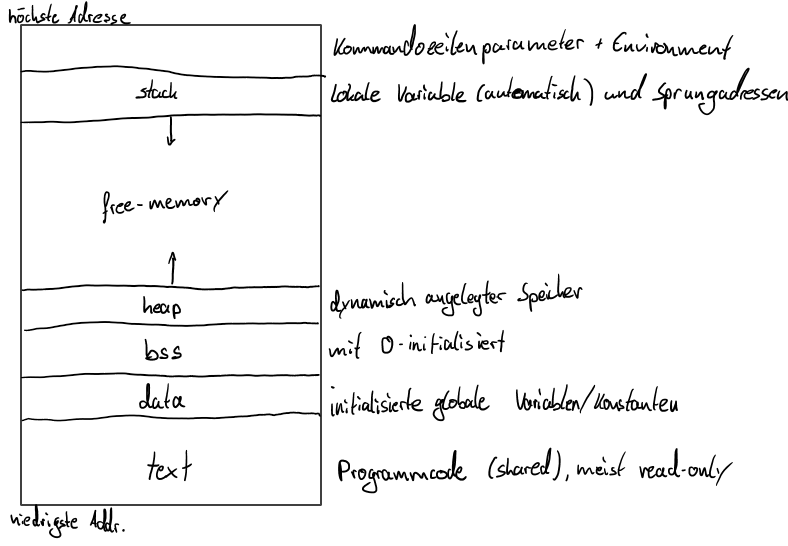 höchste Adresse
Kommandozeilenparameter + Environment
stack
Lokale Variable (automatisch) und Sprungadressen
free-memory
heap
dynamisch angelegter Speicher
bss
mit 0-initialisiert
data
initialisierte globale Variablen/Konstanten
text
Programmcode (shared), meist read-only
niedrigste Addr.